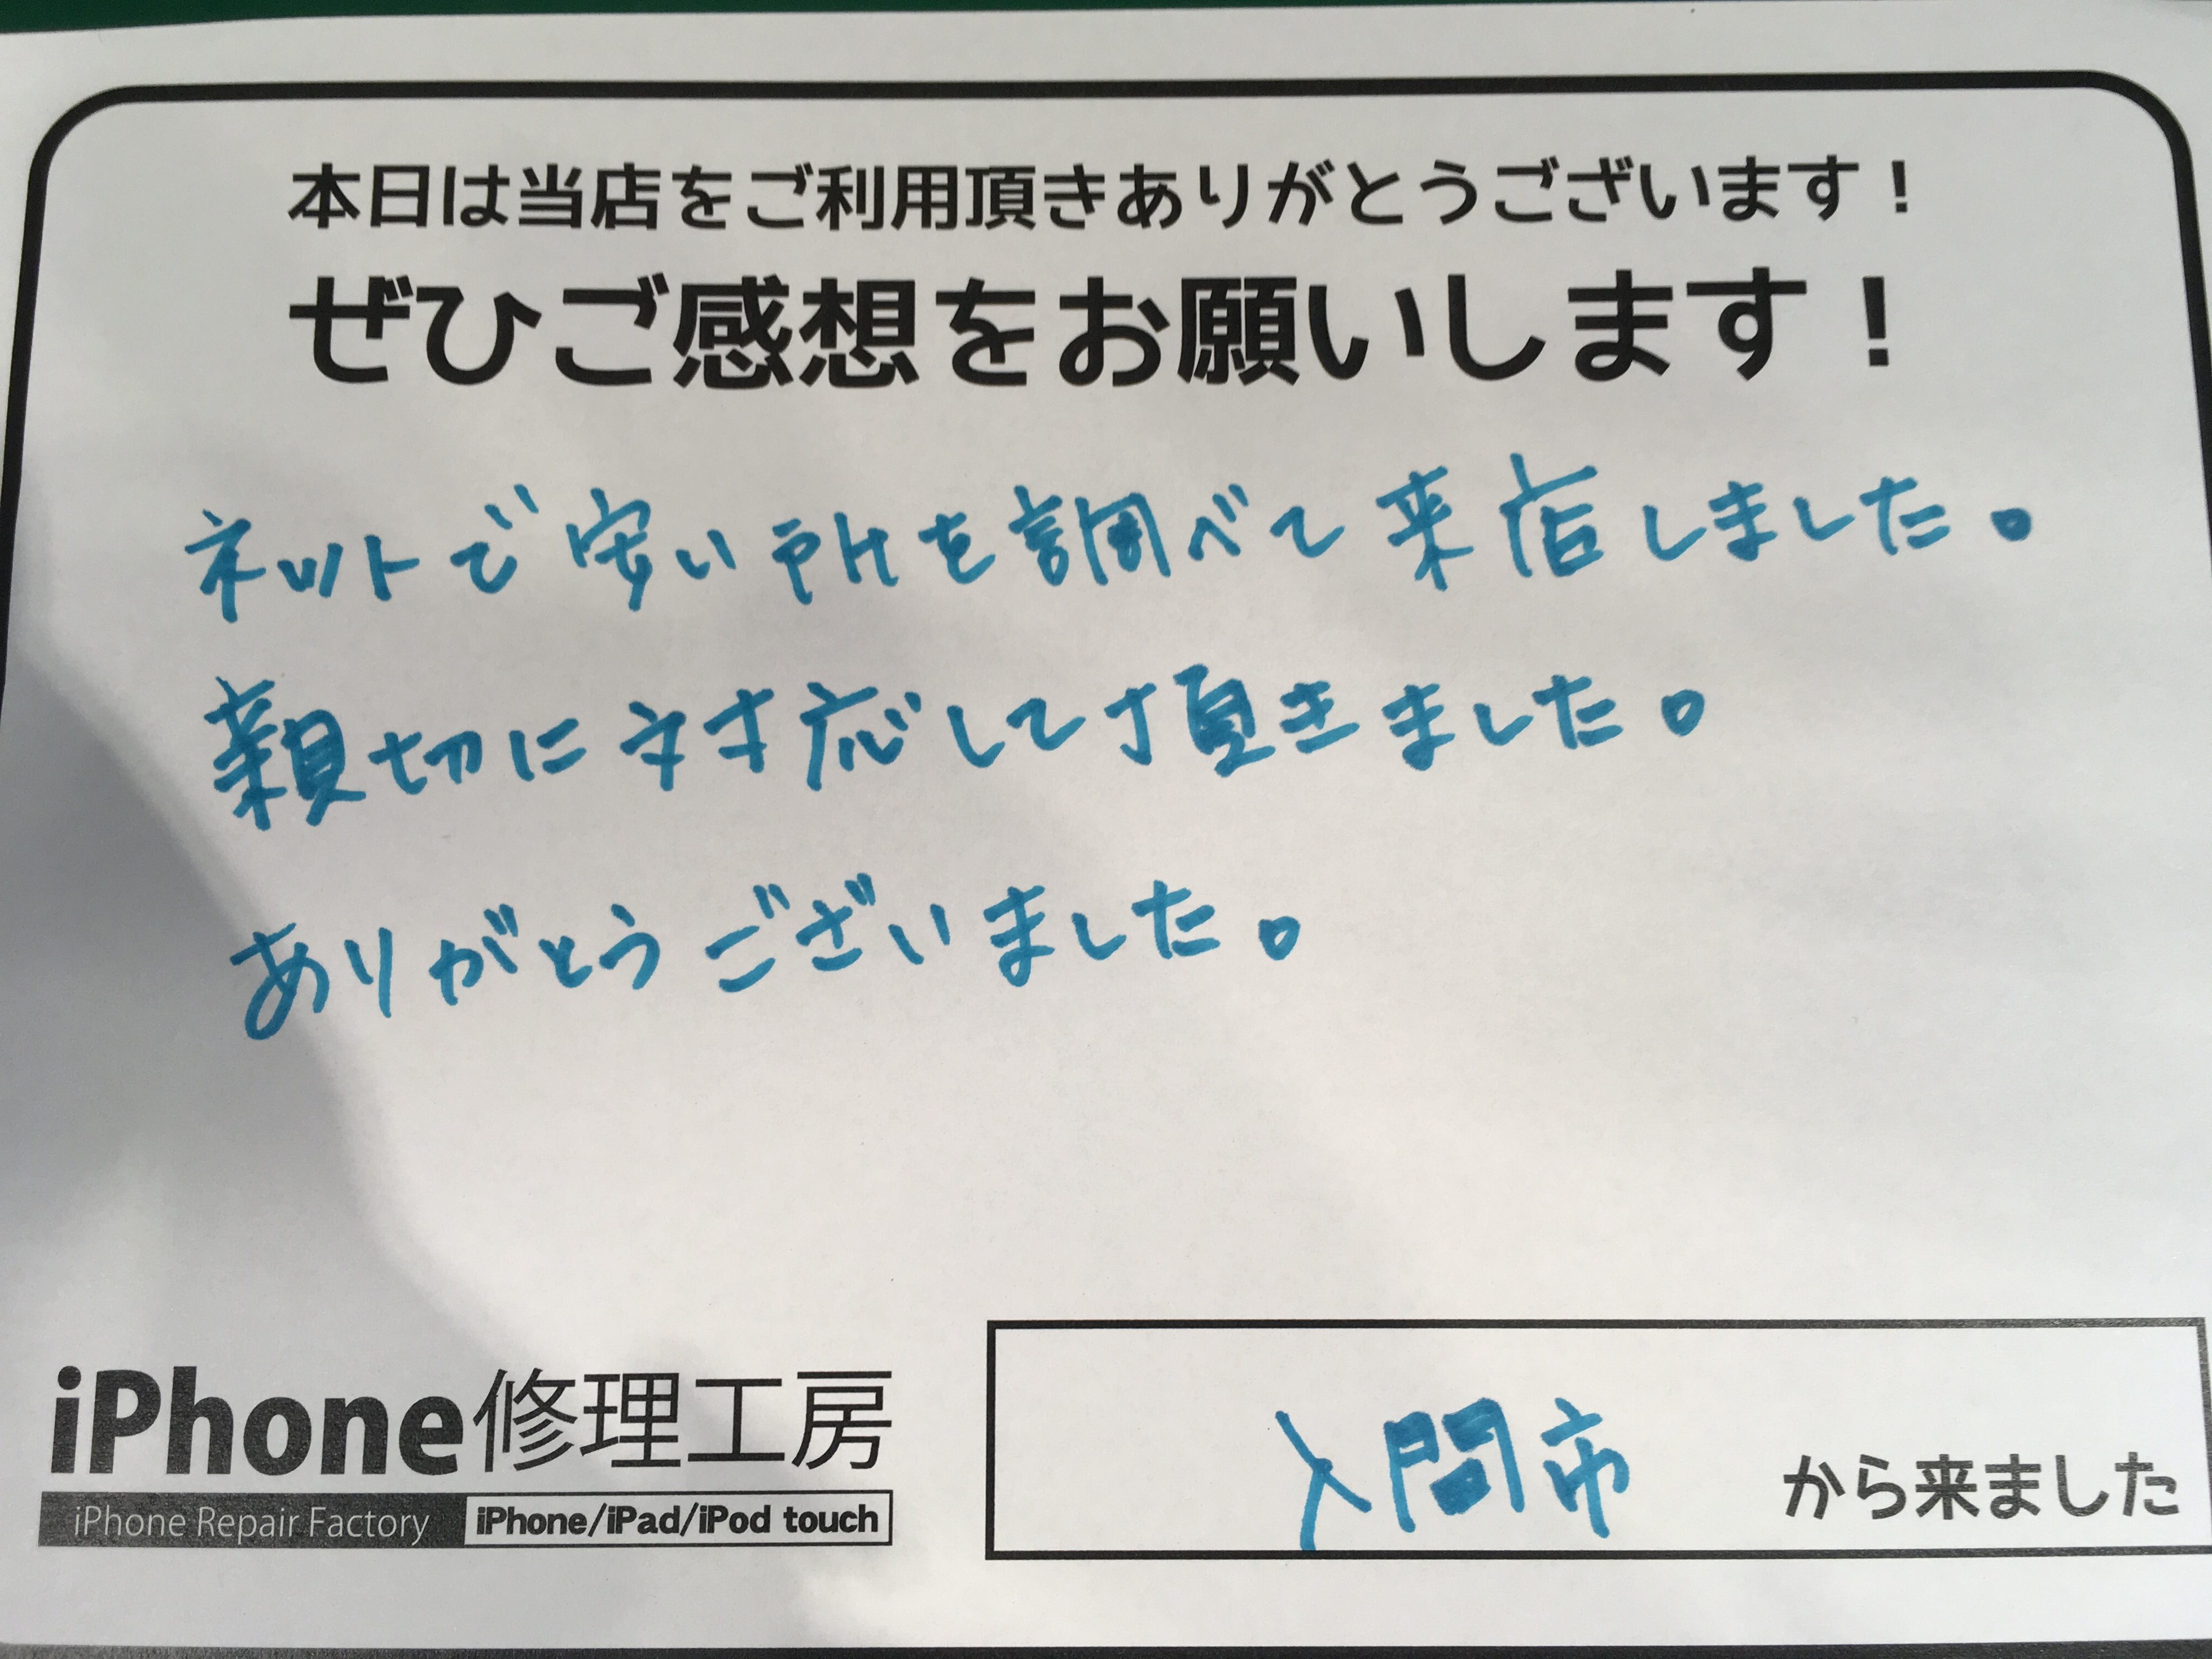 本日は当店をご利用頂きありがとうございます！
ぜひご感想をお願いします！
ネットで安い所を調べて来店しました。
親切に対応して頂きました。
ありがとうございました。
iPhone修理工房
iPhone Repair Factory iPhone/iPad/iPod touch
入間市 から来ました